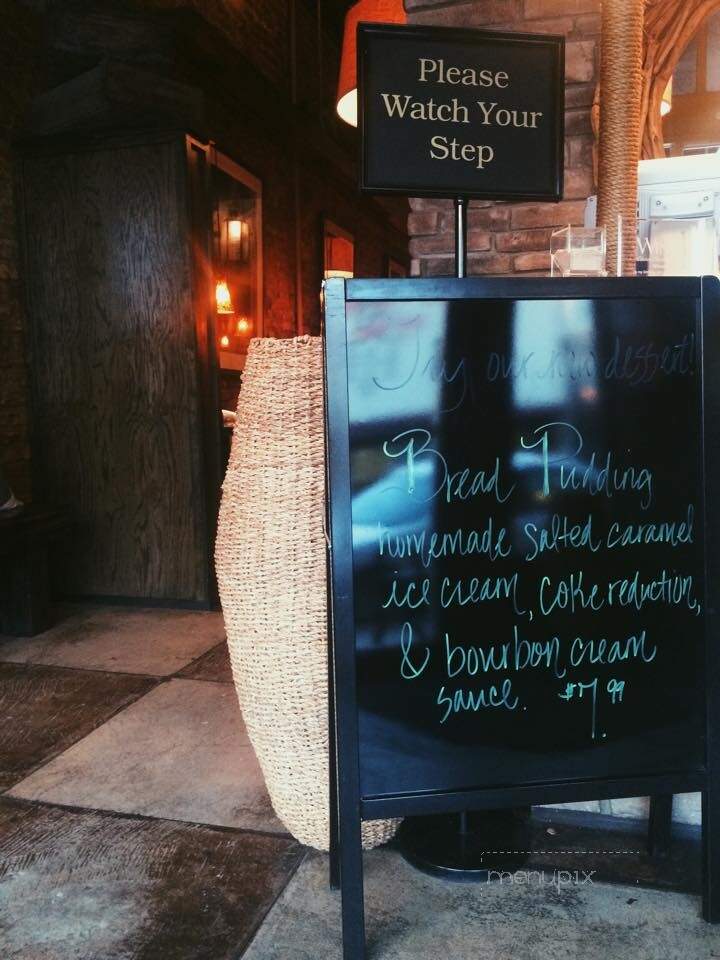 Please
Watch Your
Step
Try our new dessert!
Bread Pudding
homemade salted caramel
ice cream, coke reduction,
& bourbon cream
sauce. $7.99
menupix